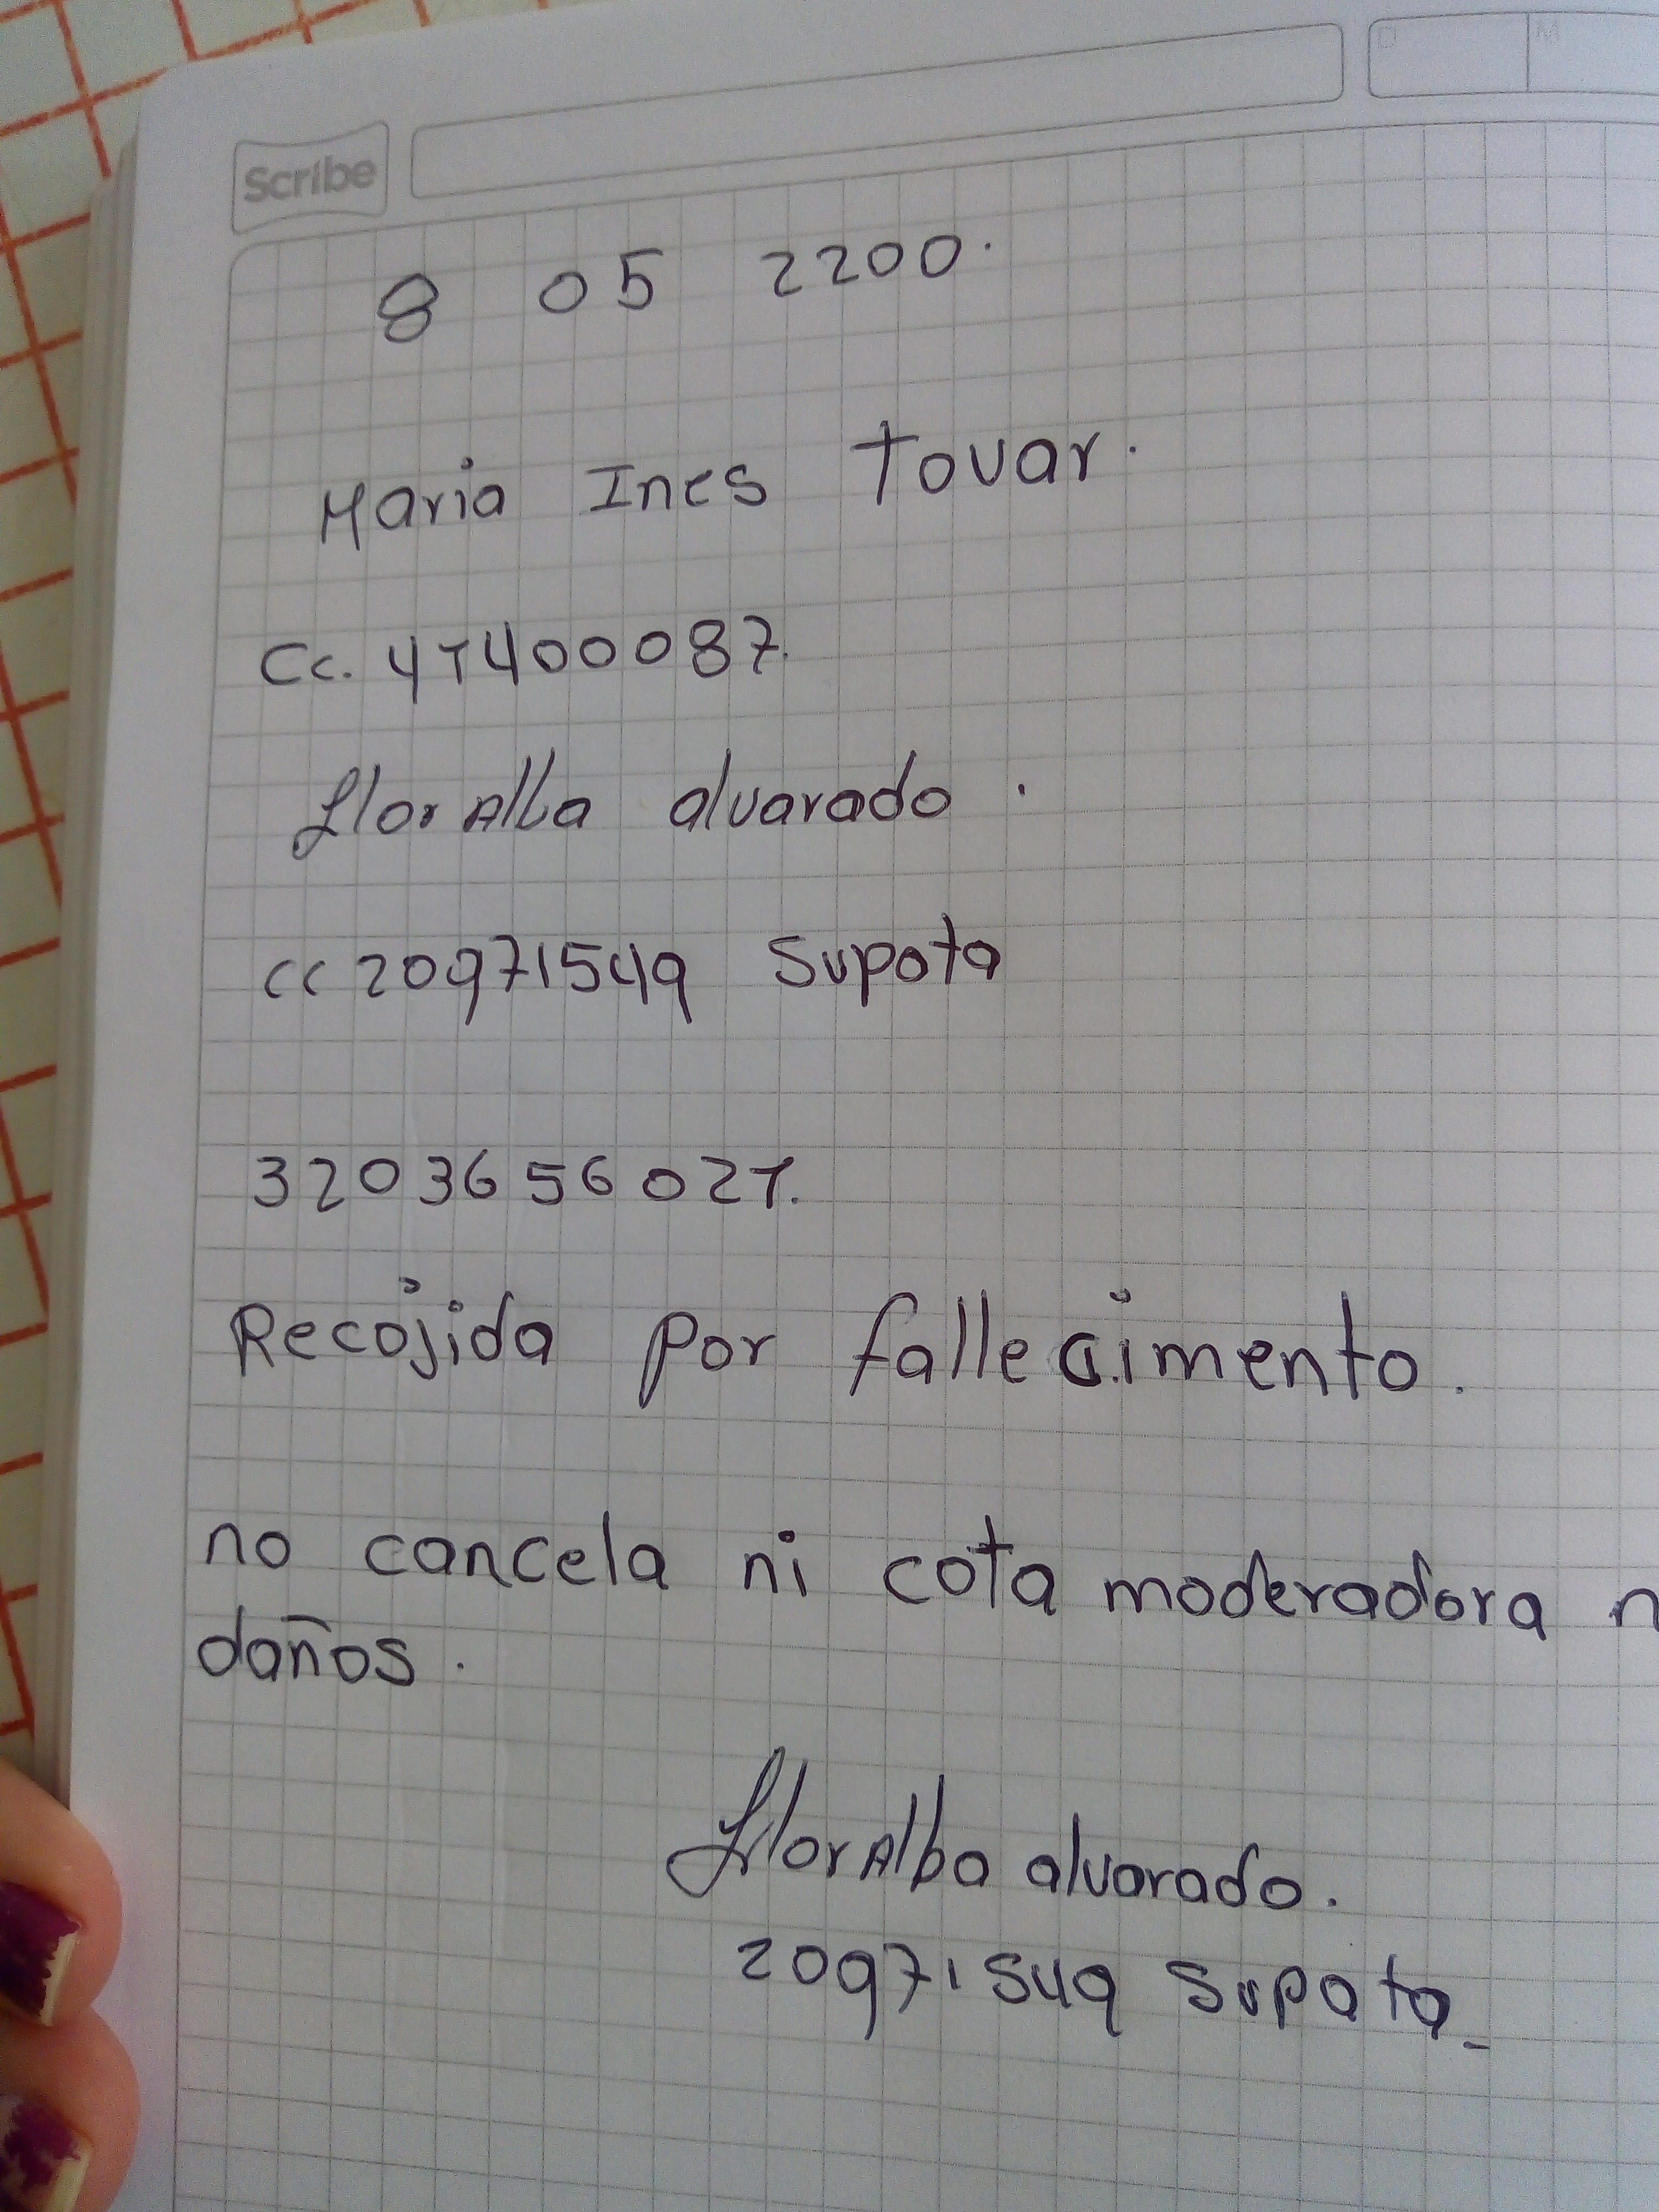 Scribe
D M
8 05 2200.
Maria Ines Tovar.
Cc. 41400087.
Flor Alba alvarado.
cc 20971549 Supata
3203656021.
Recojida por fallecimento.
no cancela ni cota moderadora n
daños.
Flor Alba alvarado.
20971549 Supata